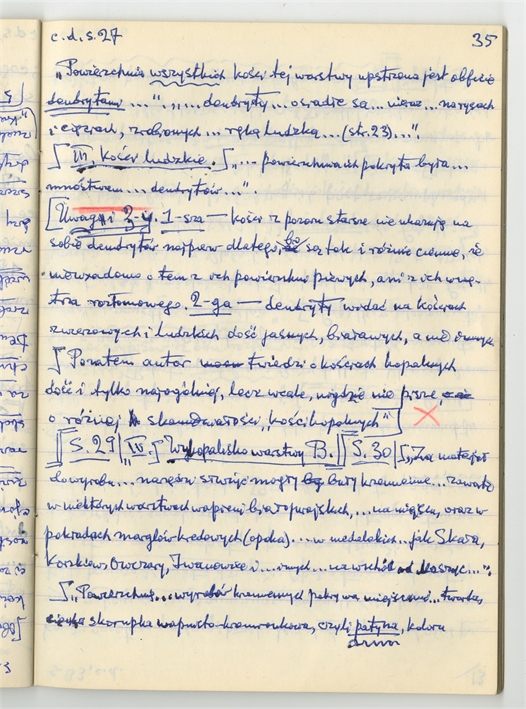 c.d.s.27 35
„Powierzchnia wszystkich kości tej warstwy upstrzona jest obficie
dendrytami ...", „... dendryty... osiadłe są... nieraz... na rysach
i cięciach, zrobionych... ręką ludzką... (str. 23)...".
⌠ III. Kości ludzkie. ⌠ „... powierzchnia ich pokryta była...
mnóstwem... dendrytów...".
[Uwagi 3-y. 1-sza — kości z pozoru starsze nie ukazują na
sobie dendrytów najpierw dlatego, że są tak i różnie ciemne, że
niewiadomo o tem z ich powierzchni pierwszych, ani z ich wnę-
trza rozłomowego. 2-ga — dendryty widać na kościach
zwierzowych i ludzkich dość jasnych, białawych, a nie
⌠ Pozatem autor twierdzi o kościach kopalnych
dość i tylko najogólniej, lecz wcale, nigdzie nie pisze,
o różnej skamieniałości, kości kopalnych"]
[S. 29] IV. ⌠ Wykopalisko warstwy B. [S. 30] ⌠ „Za materjał
do wyrobu... narzędzi służyć mogły były krzemienie... zawarte
w niektórych warstwach wapieni białojurajskich,... na miejscu, oraz w
pokładach marglów kredowych (opoka)... w niedalekich... jak Skała,
Korzkiew, Owczary, Iwanowice i... innych... na wschód od Maszyc...".
⌠ „Powierzchnię... wyrobów krzemiennych pokrywa miejscami... twarda,
cienka skorupka wapnisto-krzemionkowa, czyli patyna, koloru